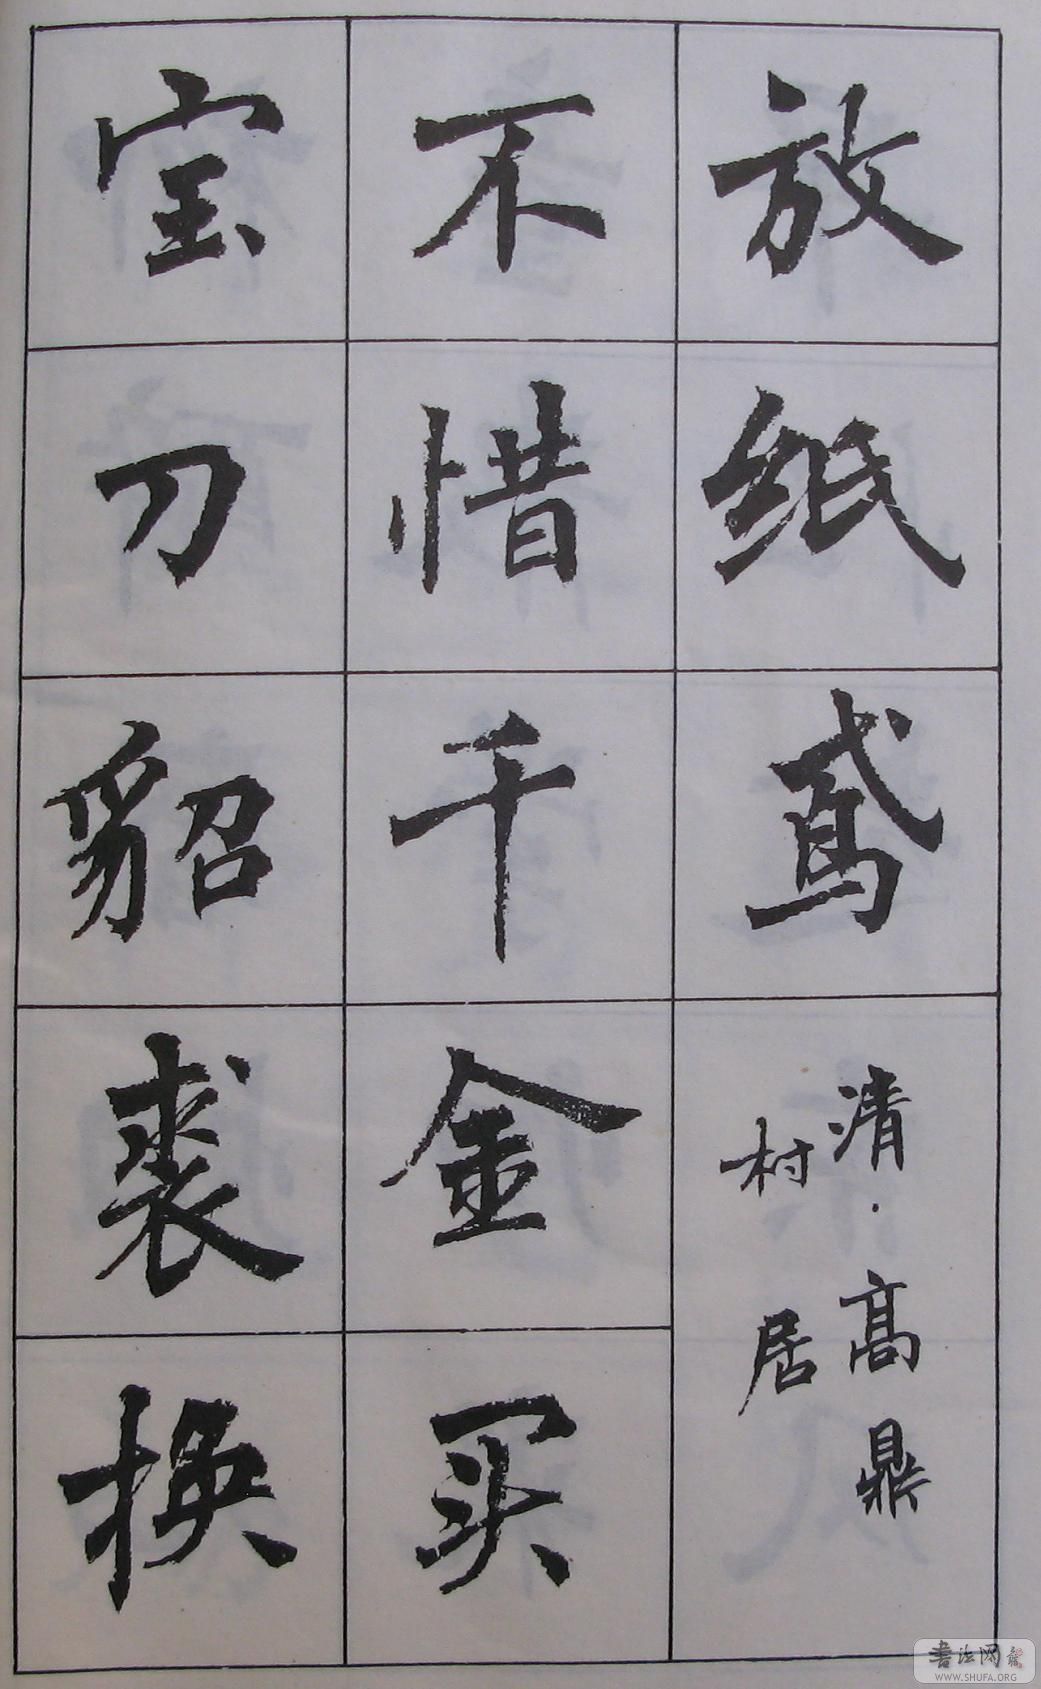 放纸鸢
清·高鼎
村居
不惜千金买
宝刀貂裘换
书法网
WWW.SHUFA.ORG